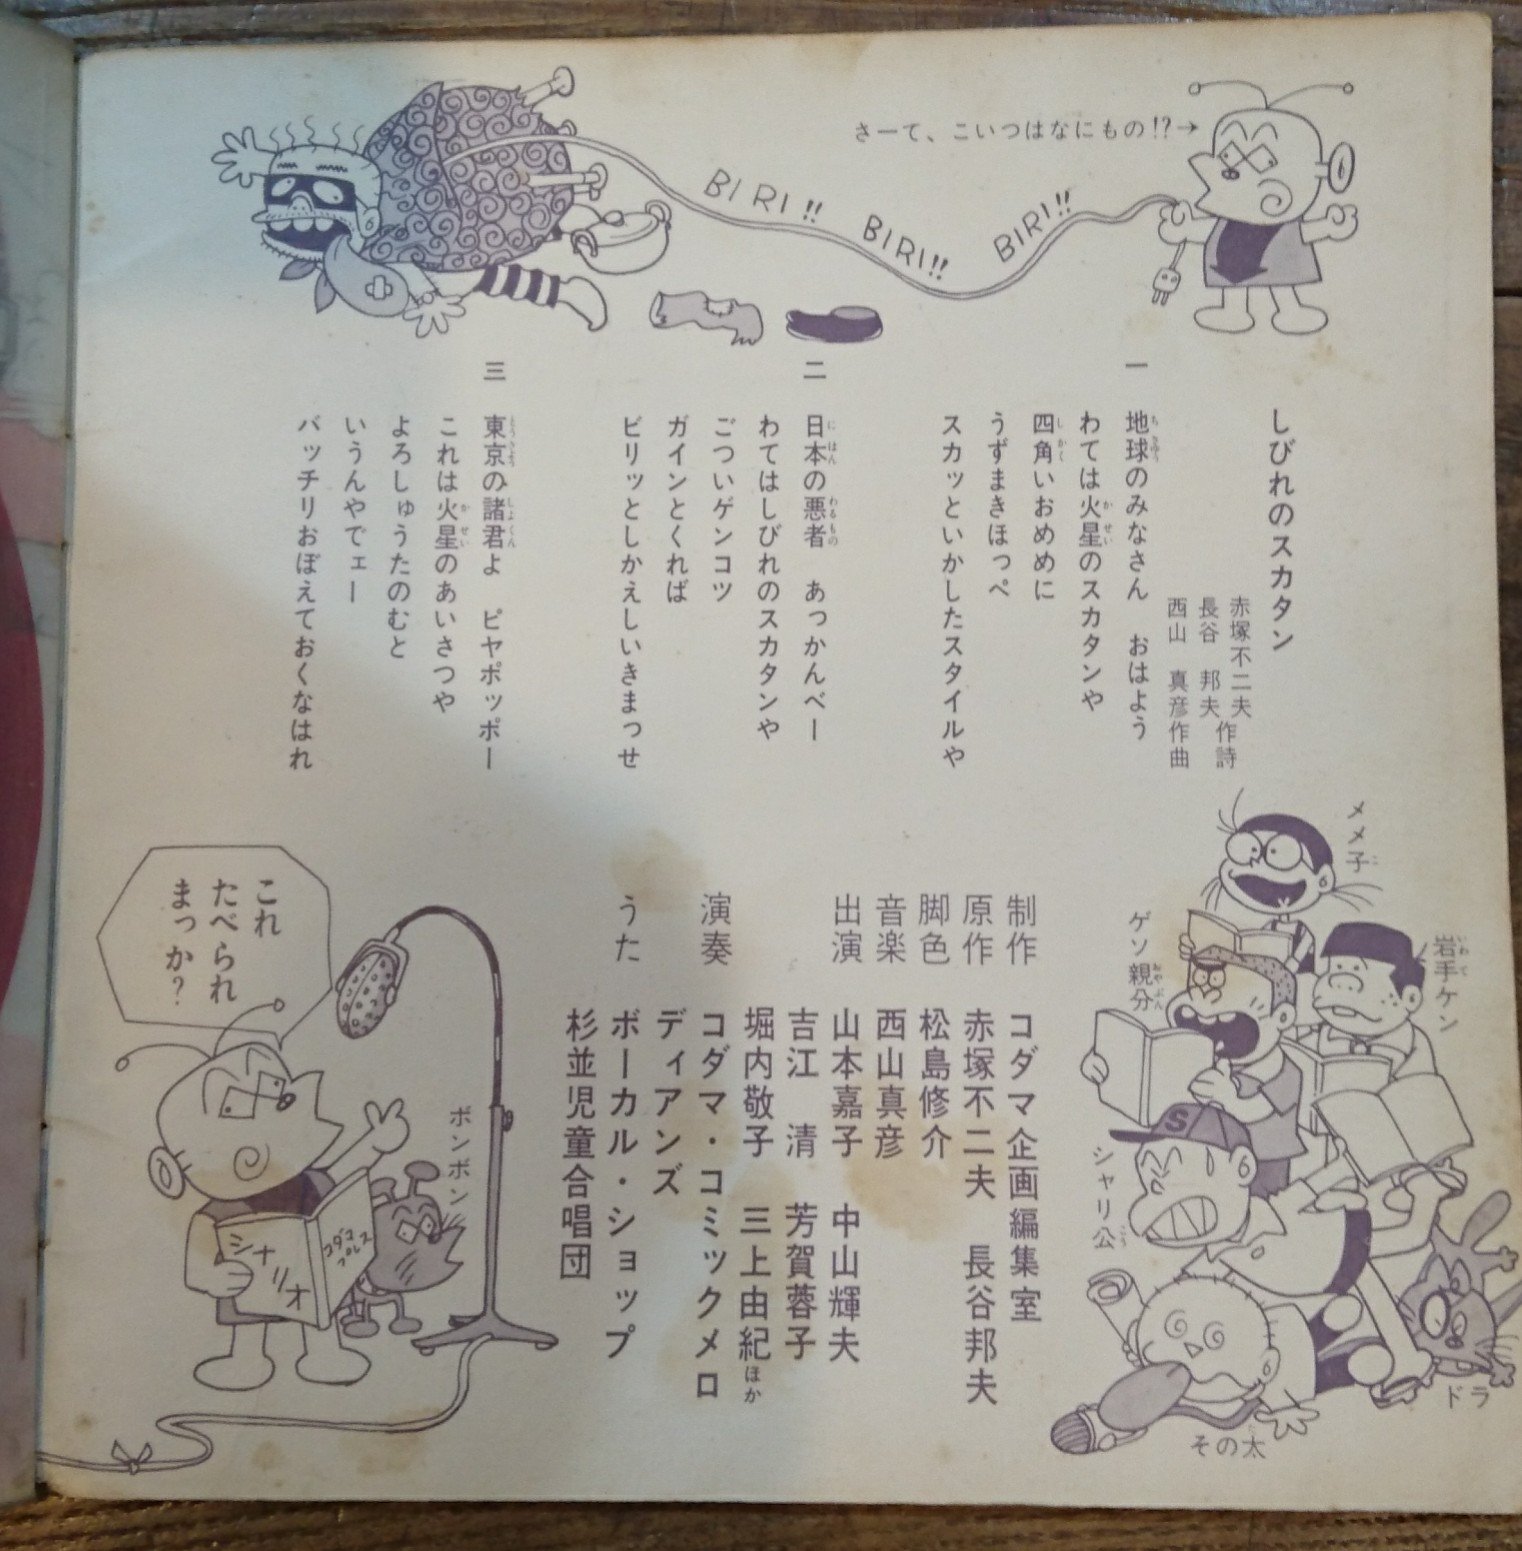 さーて、こいつはなにもの!?→
BIRI!!
BIRI!!
BIRI!!
しびれのスカタン
赤塚不二夫
長谷 邦夫 作詩
西山 真彦作曲
一
地球のみなさん おはよう
わては火星のスカタンや
四角いおめめに
うずまきほっぺ
スカッといかしたスタイルや
二
日本の悪者 あっかんべー
わてはしびれのスカタンや
ごついゲンコツ
ガインとくれば
ビリッとしかえしいきまっせ
三
東京の諸君よ ピヤポッポー
これは火星のあいさつや
よろしゅうたのむと
いうんやでェー
バッチリおぼえておくなはれ
メメ子
岩手ケン
ゲソ親分
シャリ公
ドラ
その太
制作 コダマ企画編集室
原作 赤塚不二夫 長谷邦夫
脚色 松島修介
音楽 西山真彦
出演 山本嘉子 中山輝夫
吉江 清 芳賀蓉子
堀内敬子 三上由紀ほか
演奏 コダマ・コミックメロ
ディアンズ
うた ボーカル・ショップ
杉並児童合唱団
これ
たべられ
まっか?
ボンボン
シナリオ
コダマ
プレス